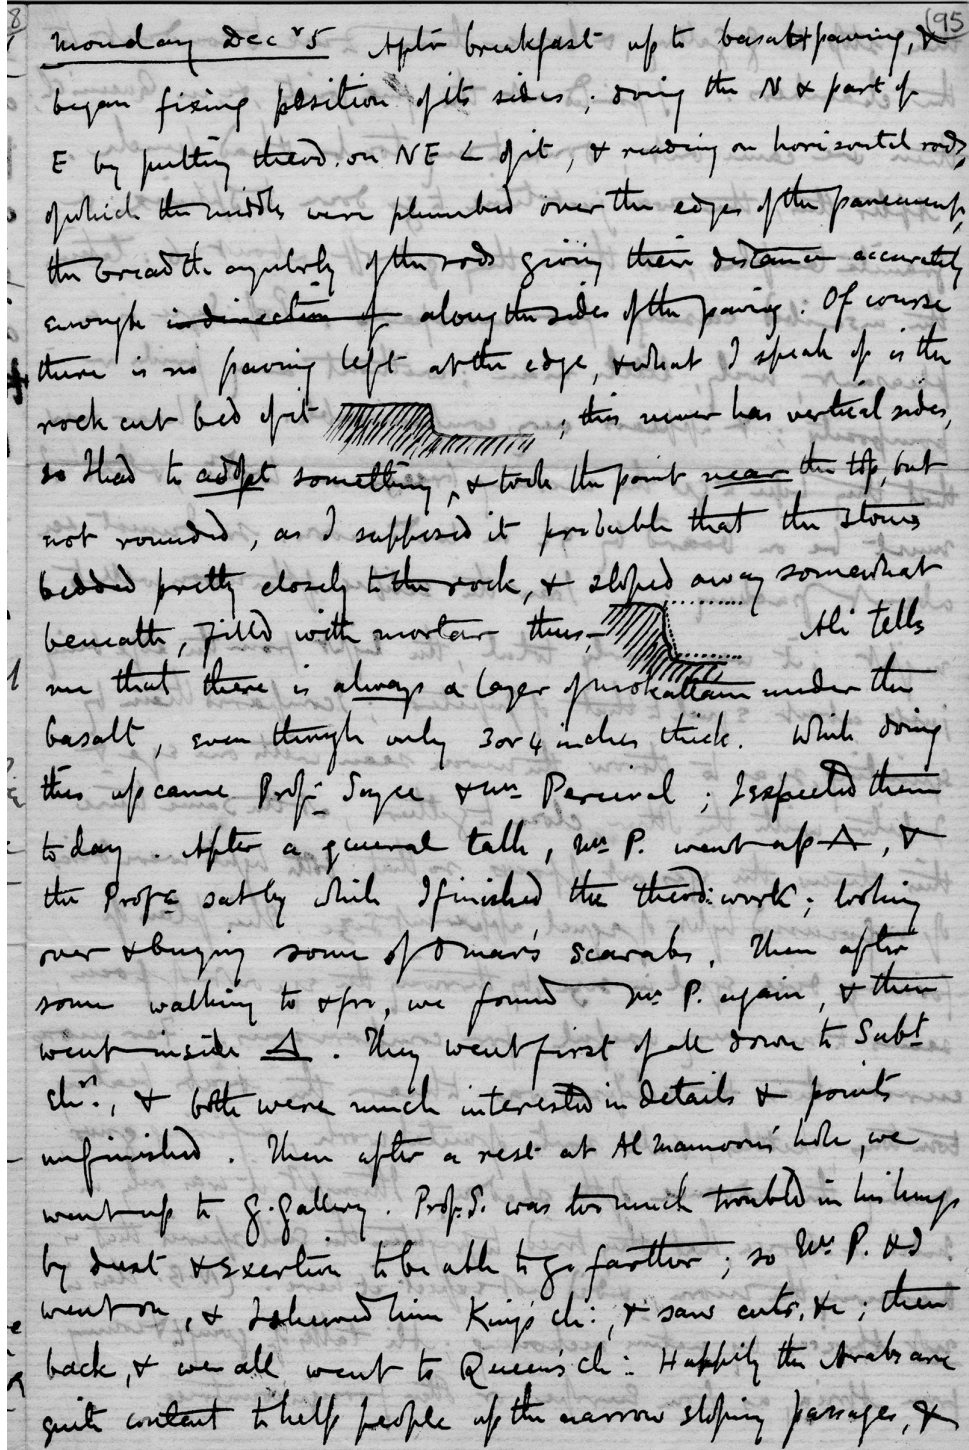 95
Monday Decr 5 After breakfast up to basalt paving, &
began fixing position of its sides; doing the N & part of
E by putting theod. on NE ∠ of it, & reading on horizontal rods,
of which the middles were plumbed over the edges of the pavement,
the breadth angularly of the rods giving their distance accurately
enough in direction of along the sides of the paving. Of course
there is no paving left at the edge, & what I speak of is the
rock cut bed of it ; this never has vertical sides,
so I had to adopt something, & took the point near the top, but
not rounded, as I supposed it probable that the stones
bedded pretty closely to the rock, & sloped away somewhat
beneath, filled with mortar thus- Ali tells
me that there is always a layer of mokattam under the
basalt, even though only 3 or 4 inches thick. While doing
this up came Profr Sayce & Mr Percival; I expected them
today. After a general talk, Mr P. went up △, &
the Profr sat by while I finished the theod: work; looking
over & buying some of Omar's scarabs. Then after
some walking to & fro, we found Mr P. again, & then
went inside △. They went first of all down to Subt
chr., & both were much interested in details & points
unfinished. Then after a rest at Al Mamoon's hole, we
went up to G. Gallery. Prof. S. was too much troubled in his lungs
by dust & exertion to be able to go farther; so Mr P. & I
went on, & I shewed him King's ch:, & saw cuts, &c; then
back, & we all went to Queen's ch: Happily the Arabs are
quite content to help people up the narrow sloping passages, &